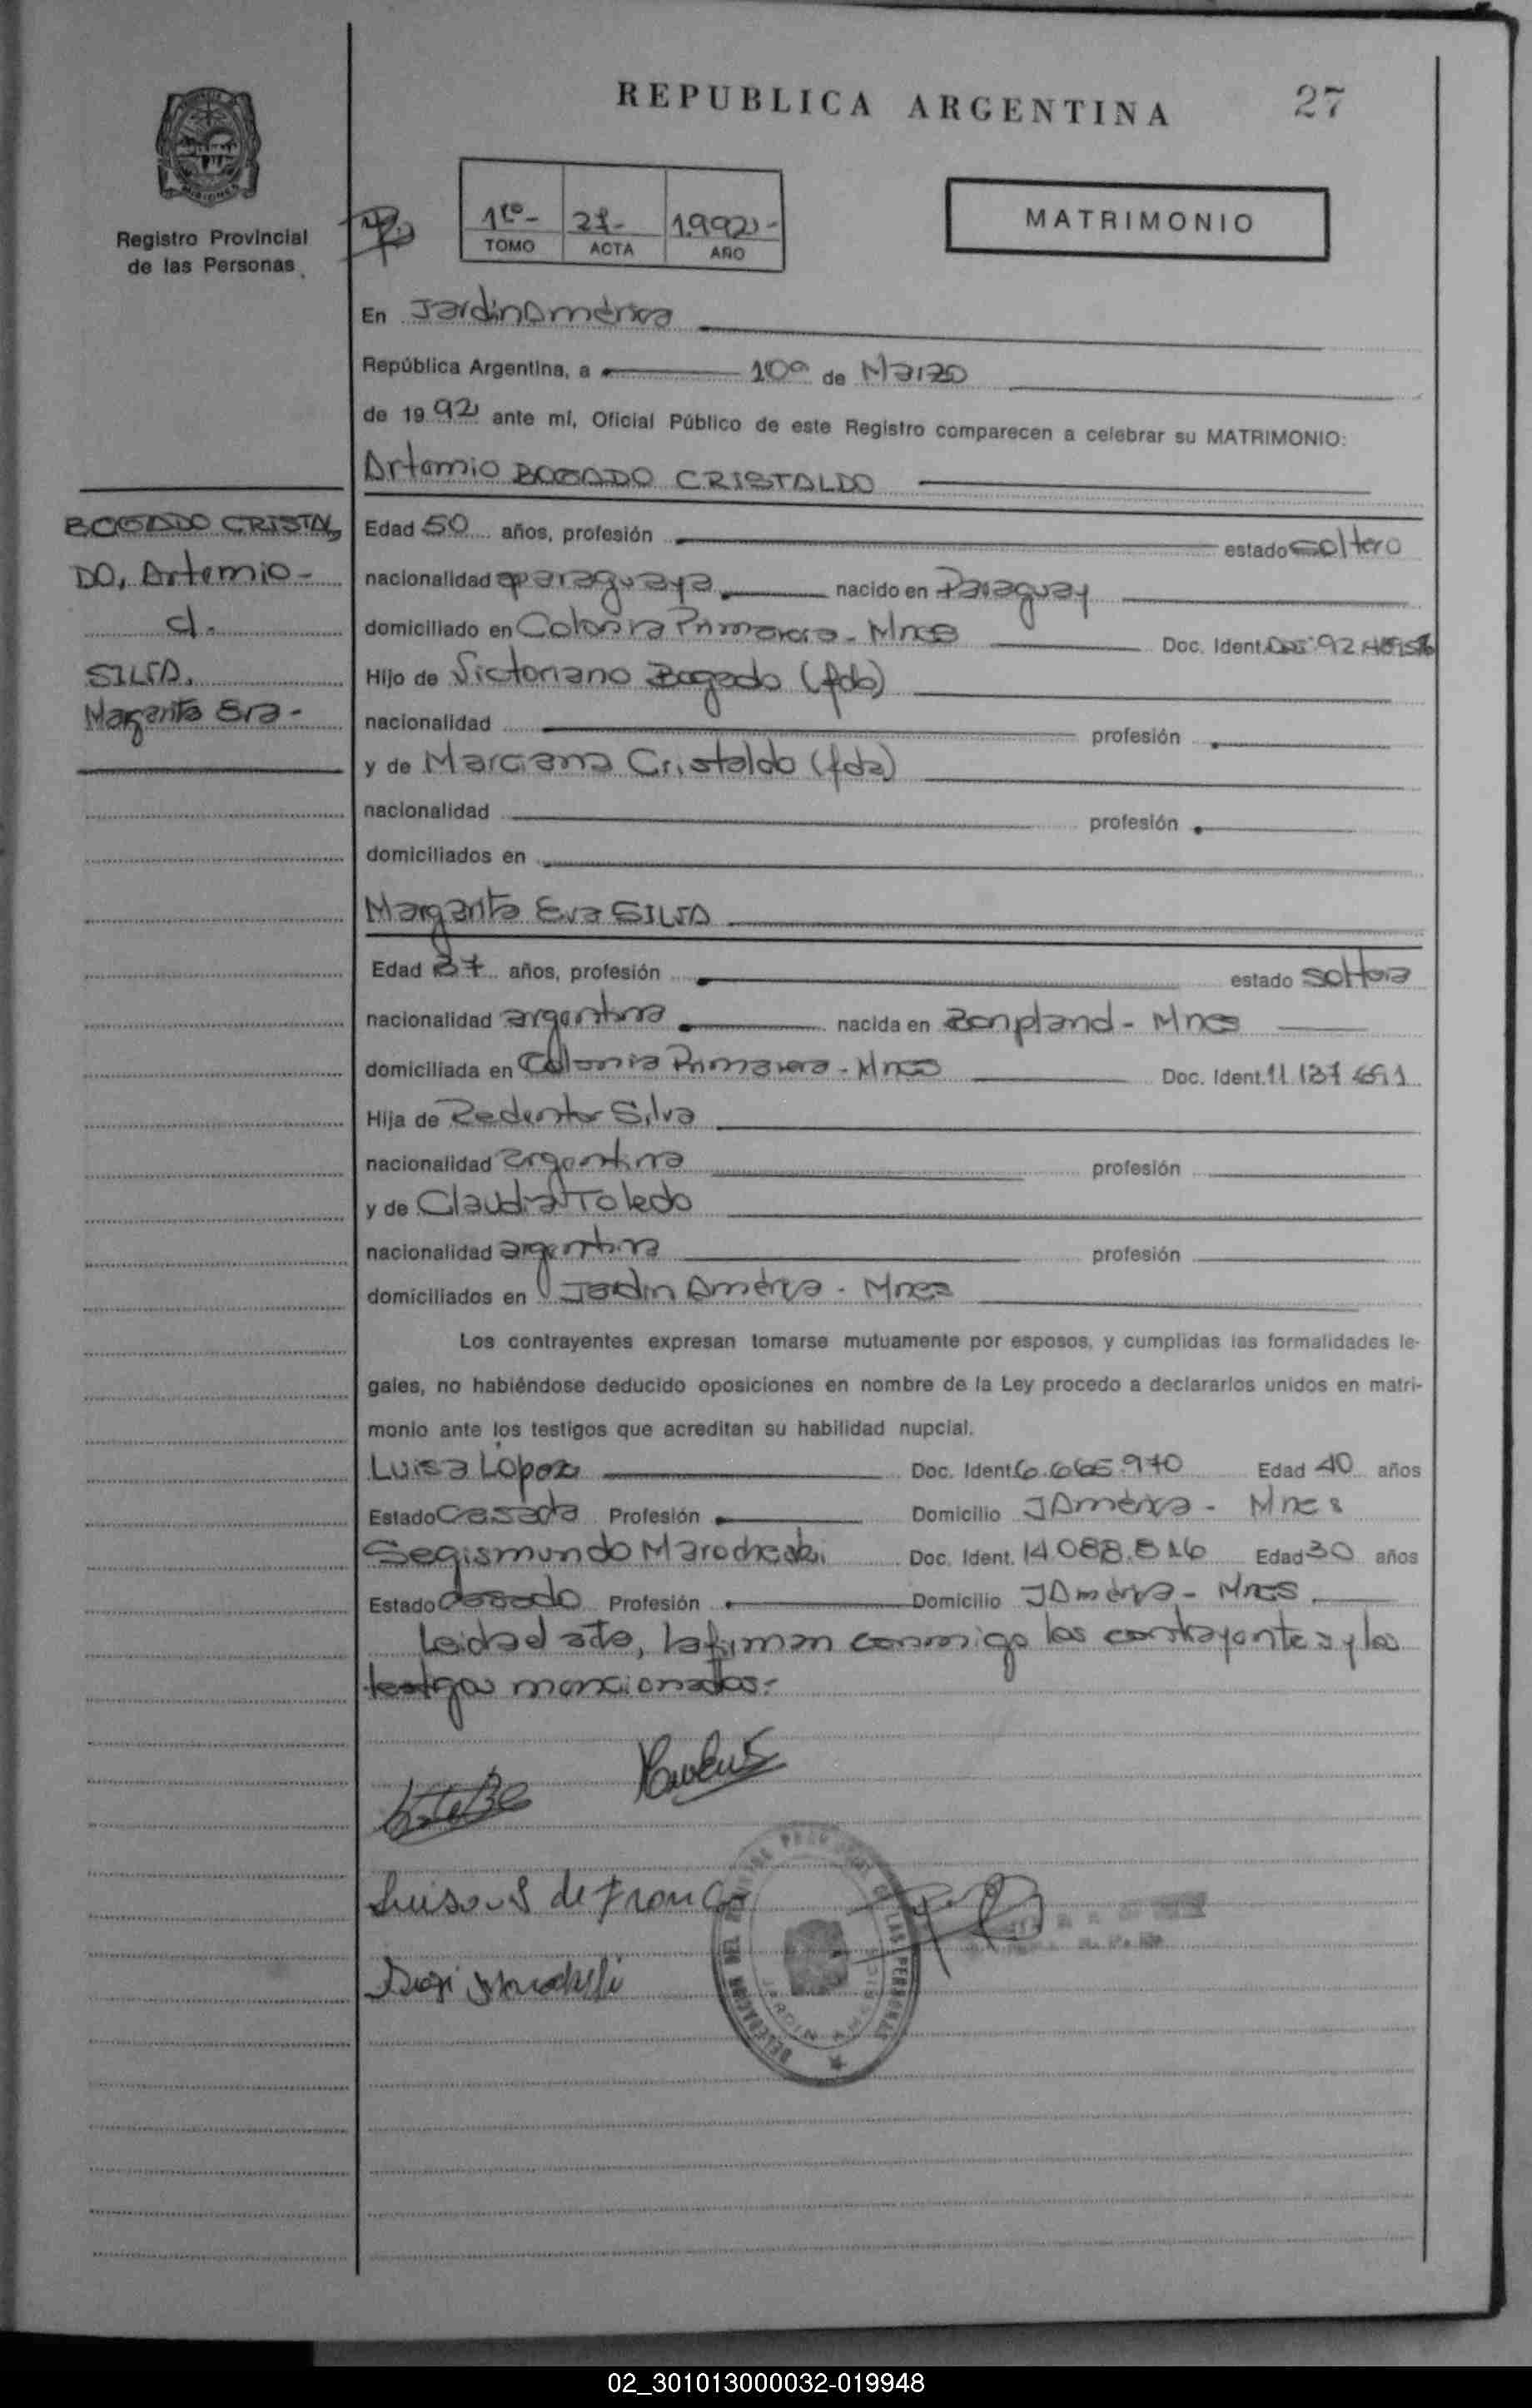 REPUBLICA ARGENTINA
27
Registro Provincial
de las Personas
1ro- 27- 1992-
TOMO ACTA AÑO
MATRIMONIO
En Jardin América
República Argentina, a 10 de Marzo
de 1992 ante mi, Oficial Público de este Registro comparecen a celebrar su MATRIMONIO:
Artemio BOGADO CRISTALDO
BOGADO CRISTAL
DO, Artemio -
c/.
SILVA,
Margarita Eva -
Edad 50 años, profesión estado soltero
nacionalidad paraguaya nacido en Paraguay
domiciliado en Colonia Primavera - Mnes Doc. Ident.
Hijo de Victoriano Bogado (fdo)
nacionalidad profesión
y de Marciana Cristaldo (fda)
nacionalidad profesión
domiciliados en
Margarita Eva SILVA
Edad 37 años, profesión estado soltera
nacionalidad argentina nacida en Bonpland - Mnes
domiciliada en Colonia Primavera - Mnes Doc. Ident.
Hija de Redentor Silva
nacionalidad argentina profesión
y de Claudia Toledo
nacionalidad argentina profesión
domiciliados en Jardin América - Mnes
Los contrayentes expresan tomarse mutuamente por esposos, y cumplidas las formalidades le-
gales, no habiéndose deducido oposiciones en nombre de la Ley procedo a declararlos unidos en matri-
monio ante los testigos que acreditan su habilidad nupcial.
Luisa López Doc. Ident. 6.665.970 Edad 40 años
Estado casada Profesión Domicilio J América - Mnes
Segismundo Marocheski Doc. Ident. 14.088.816 Edad 30 años
Estado casado Profesión Domicilio J América - Mnes
Leida el acta, la firman conmigo los contrayentes y los
testigos mencionados.-
02_301013000032-019948